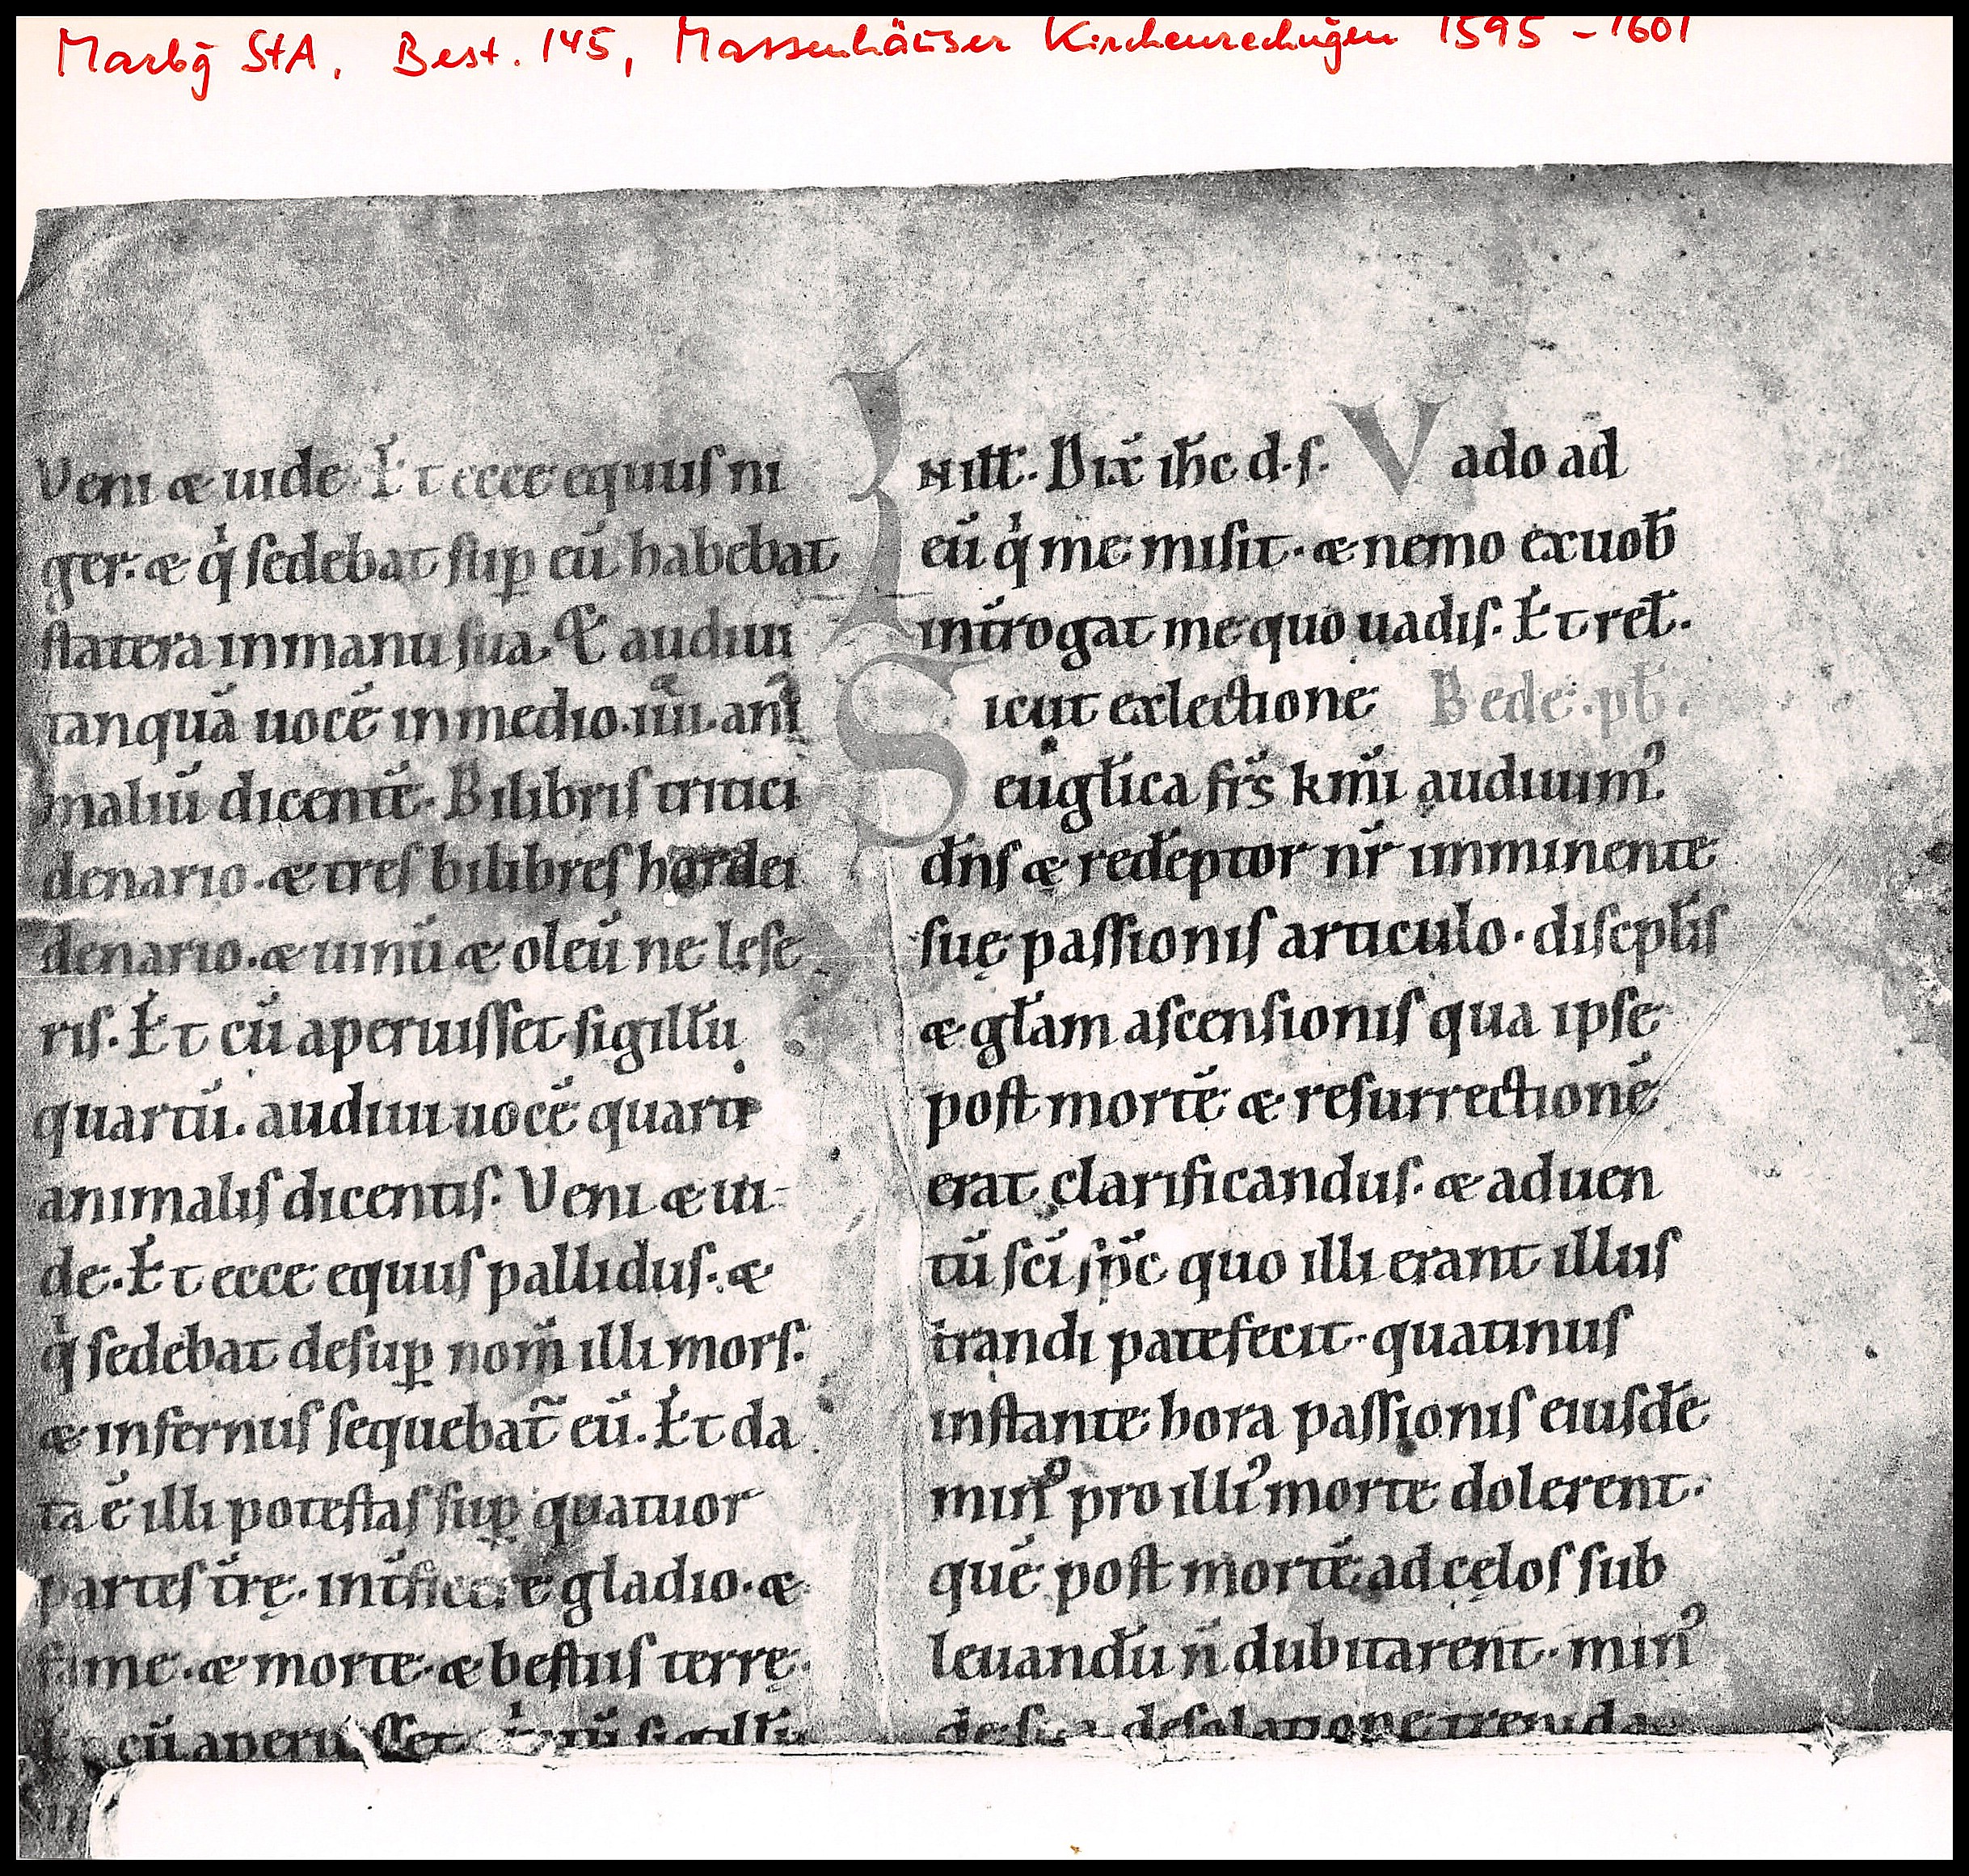 Marbg StA, Best. 145, Massenhäuser Kirchenrechngen 1595 – 1601
Veni æ uide. Et ecce equuſ ni
ger. æ qͥ ſedebat ſuꝑ eū habebat
ſtatera in manu ſua. Et audiui
tanquā uocē in medio .iiii. ani
maliū dicentē. Bilibriſ tritici
denario. æ treſ bilibreſ hordei
denario. æ uinū æ oleū ne leſe
riſ. Et cū aperuiſſet ſigillū
quartū. audiui uocē quarti
animaliſ dicentiſ. Veni æ ui
de. Et ecce equuſ palliduſ. æ
qͥ ſedebat deſuꝑ nom̄ illi morſ.
æ infernuſ ſequebat̃ eū. Et da
ta ē illi poteſtaſ ſuꝑ quatuor
parteſ t̄rę. int̄ficere gladio. æ
fame. æ morte. æ beſtiiſ terrę.
Et cū aperuiſſet qͥntū ſigillū
IN ill̄. Dix̄ ih̄c d. ſ. Vado ad
eū qͥ me miſit. æ nemo ex uob̄
int̄rogat me quo uadiſ. Et rel̄.
Sicut ex lectione Bede. pb̄.
euḡlica fr̄s km̄i audiuimꝰ
dn̄ſ æ redēptor nr̄ imminente
ſuę paſſioniſ articulo. diſcpl̄iſ
æ gl̄am aſcenſioniſ qua ipſe
poſt mortē æ reſurrectionē
erat clarificanduſ. æ aduen
tū ſc̄i ſp̄c quo illi erant illuſ
trandi patefecit. quatinuſ
inſtante hora paſſioniſ eiuſdē
minꝰ pro illiꝰ morte dolerent.
quē poſt mortē ad cęloſ ſub
leuandū n̄ dubitarent. minꝰ
de ſua deſolatione trepida